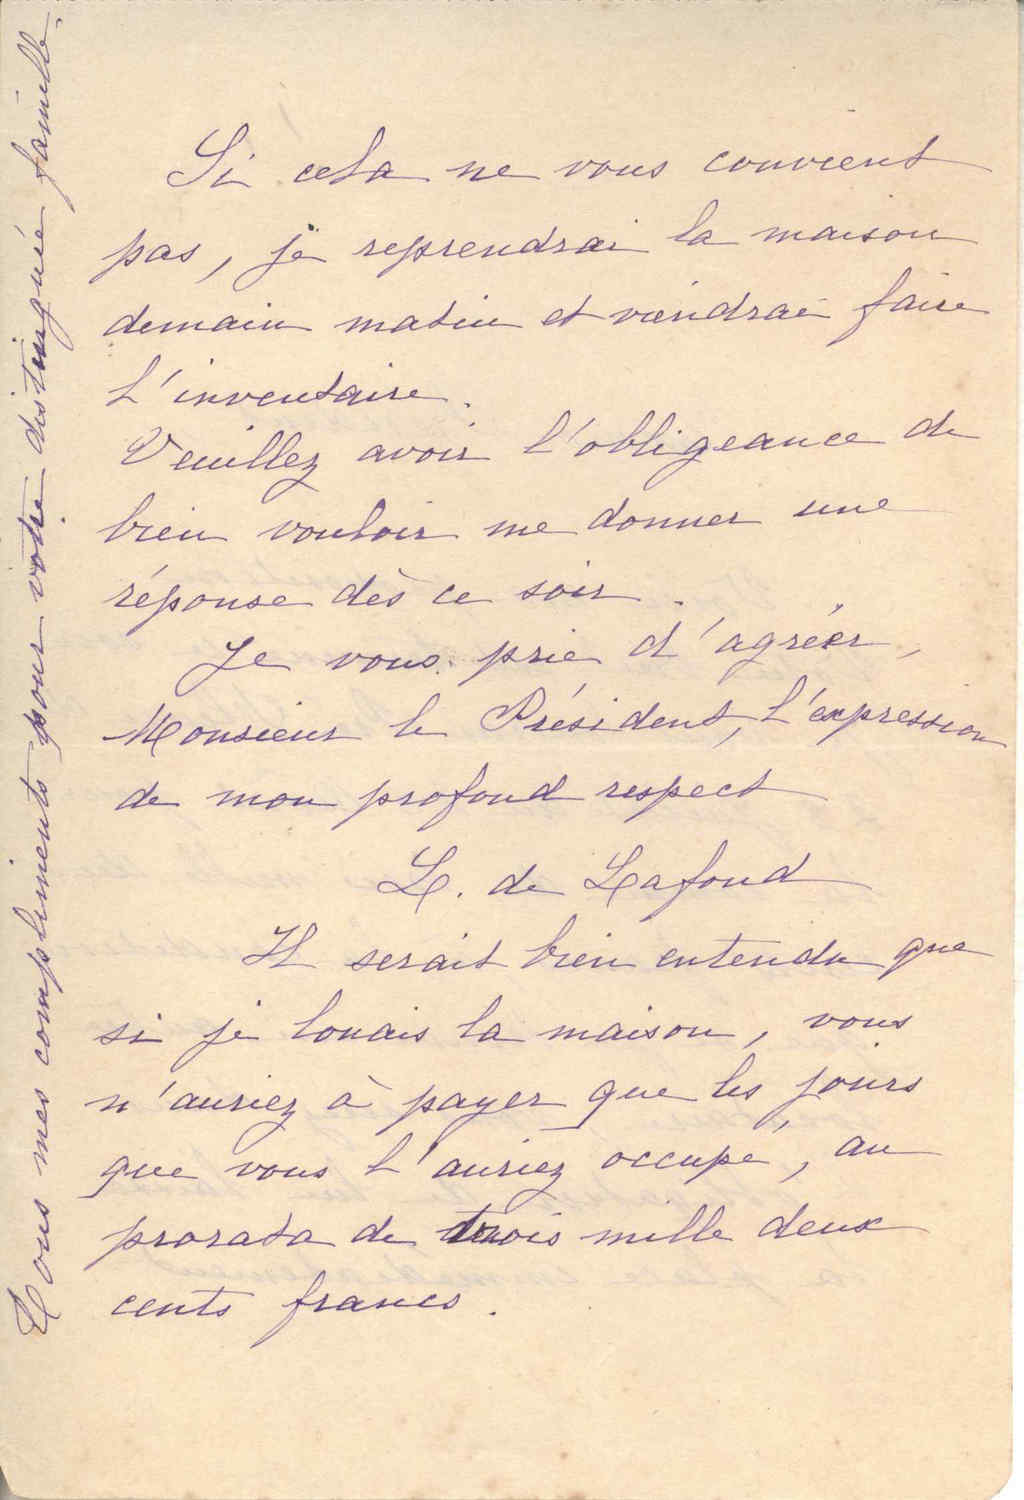 Si cela ne vous convient
pas, je reprendrai la maison
demain matin et viendrai faire
l'inventaire.
Veuillez avoir l'obligeance de
bien vouloir me donner une
réponse dès ce soir.
Je vous prie d'agréer,
Monsieur le Président, l'expression
de mon profond respect
L. de Lafond
Il serait bien entendu que
si je louais la maison, vous
n'auriez à payer que les jours
que vous l'auriez occupé, au
prorata de trois mille deux
cents francs.
Tous mes compliments pour votre distinguée famille.